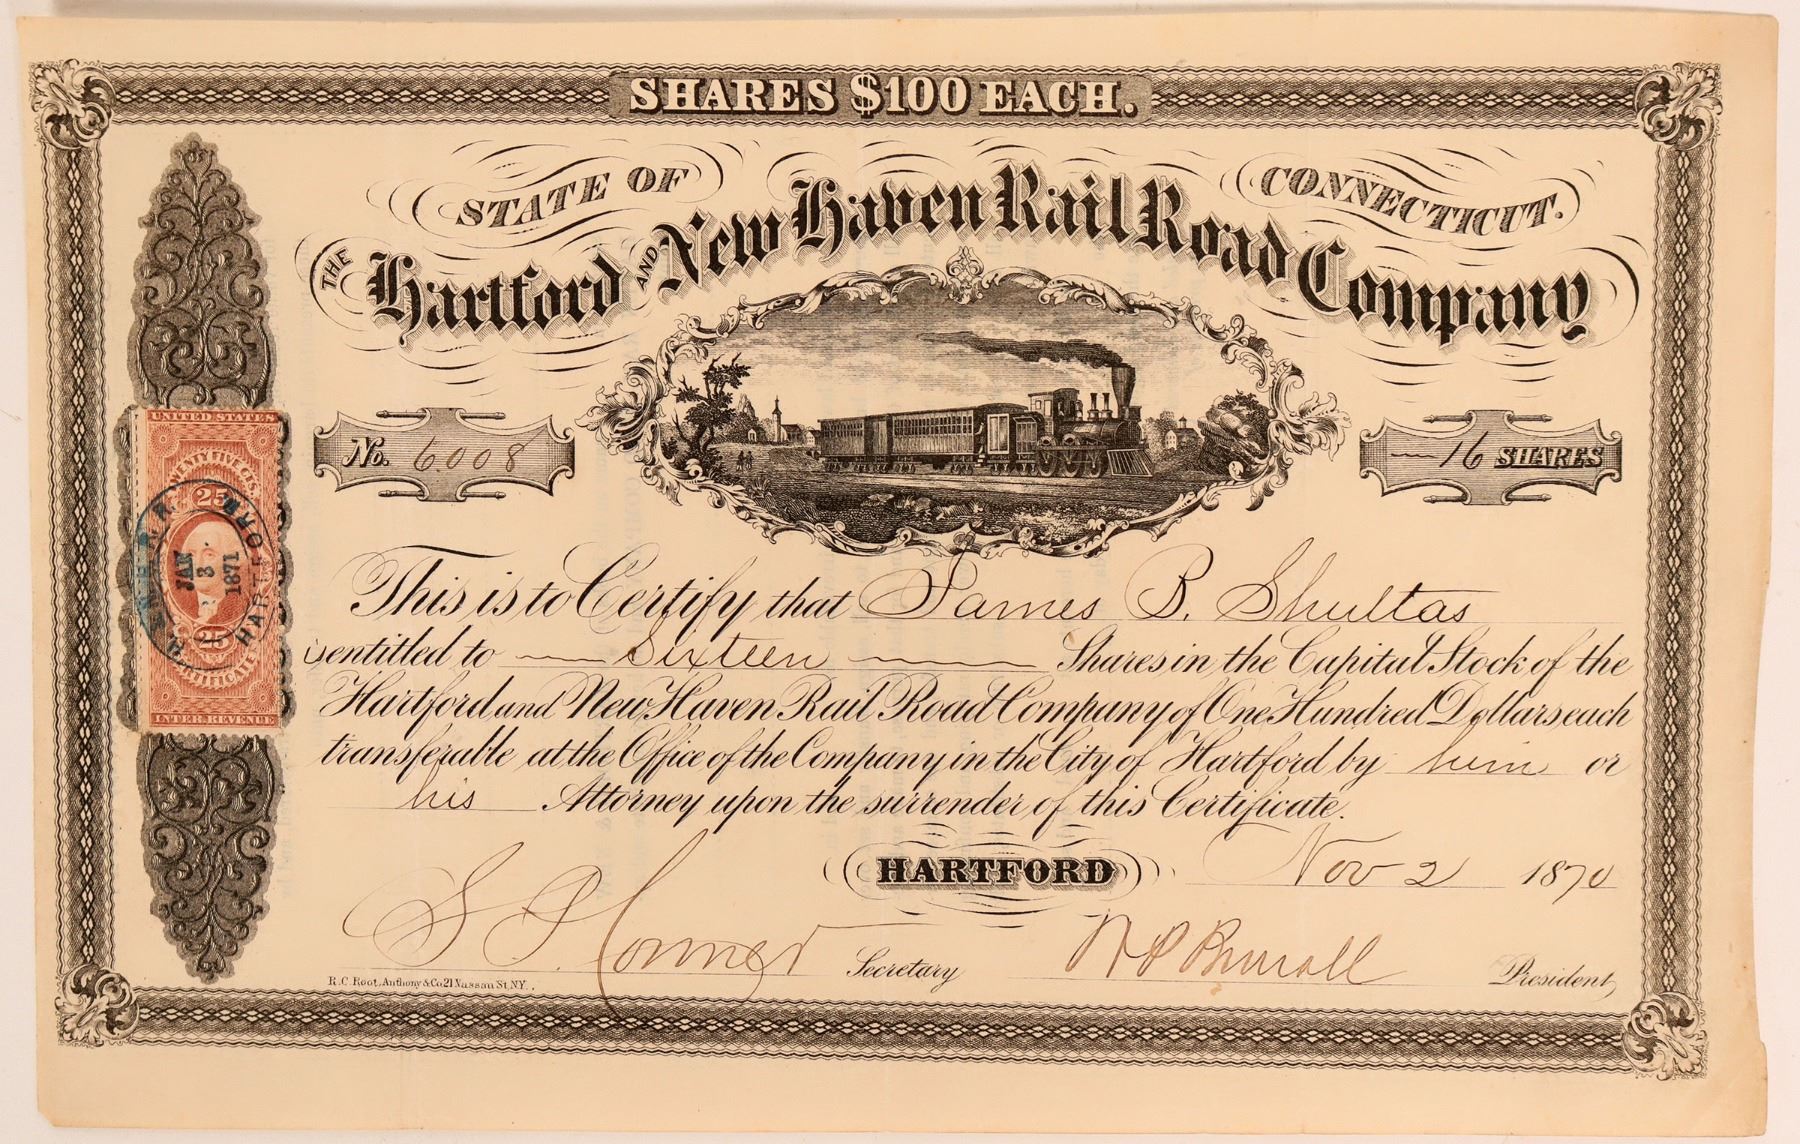 SHARES $100 EACH.
STATE OF CONNECTICUT.
THE Hartford AND New Haven Rail Road Company
No. 6008
16 SHARES
UNITED STATES
TWENTY FIVE CTS.
25
JAN
3
1871
HARTFORD
25
CERTIFICATE
INTER. REVENUE
This is to Certify that James B. Shultas
is entitled to Sixteen Shares in the Capital Stock of the
Hartford and New Haven Rail Road Company of One Hundred Dollars each
transferable at the Office of the Company in the City of Hartford by him or
his Attorney upon the surrender of this Certificate.
HARTFORD Nov 2 1870
Secretary
President
R.C. Root, Anthony & Co. 21 Nassau St. N.Y.